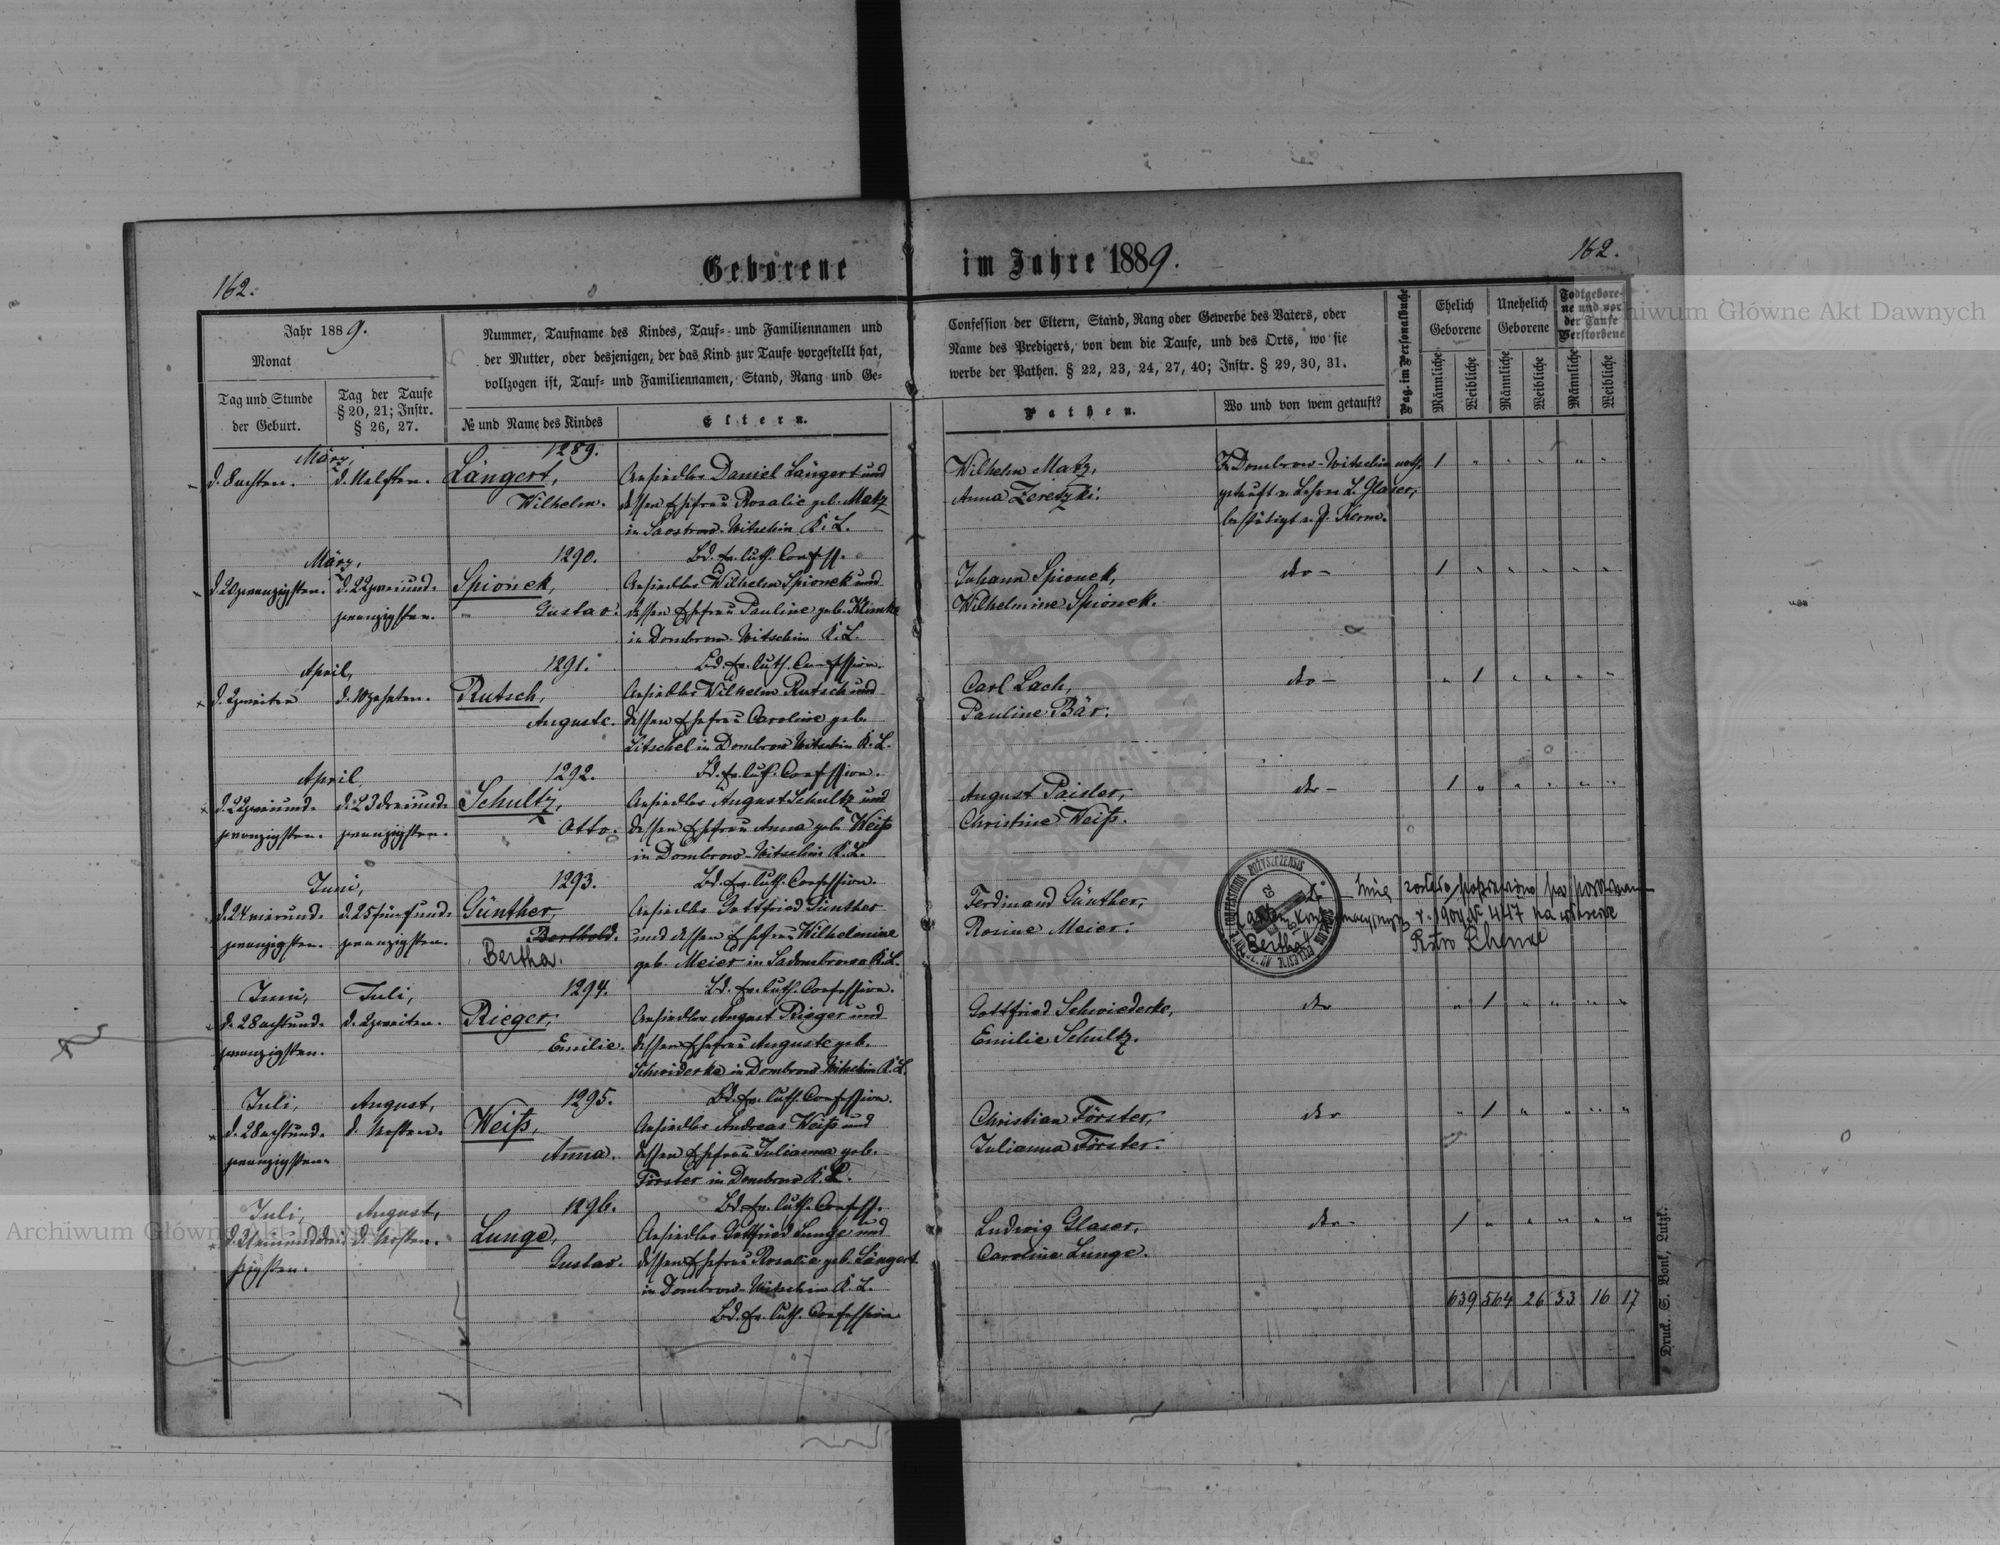 162.
Geborene im Jahre 1889.
162.
Jahr 1889.
Monat
Tag und Stunde
der Geburt.
Tag der Taufe
§ 20, 21; Instr.
§ 26, 27.
Nummer, Taufname des Kindes, Tauf- und Familiennamen und
der Mutter, oder desjenigen, der das Kind zur Taufe vorgestellt hat,
vollzogen ist, Tauf- und Familiennamen, Stand, Rang und Ge-
№ und Name des Kindes
Eltern.
Confession der Eltern, Stand, Rang oder Gewerbe des Vaters, oder
Name des Predigers, von dem die Taufe, und des Orts, wo sie
werbe der Pathen. § 22, 23, 24, 27, 40; Instr. § 29, 30, 31.
Pathen.
Wo und von wem getauft?
Pag. im Personalbuche
Ehelich
Geborene
Unehelich
Geborene
Todtgebore-
ne und vor
der Taufe
Verstorbene
Männliche
Weibliche
Männliche
Weibliche
Männliche
Weibliche
März,
d. 8 achten.
d. 11 elften.
1289.
Längert,
Wilhelm.
Ansiedler Daniel Längert und
dessen Ehefrau Rosalie geb. Matz
in Witschin K. L.
Bd. ev. luth. Confess.
Wilhelm Matz,
Anna Zeretzki.
Z. Dombrow-Witschin noth-
getauft v. Lehrer L. Glaser,
bestätigt v. P. Kerm.
März,
d. 20 zwanzigsten.
d. 22 zweiund-
zwanzigsten.
1290.
Spionek,
Gustav.
Ansiedler Wilhelm Spionek und
dessen Ehefrau Pauline geb. Klimke
in Dombrow-Witschin K. L.
Bd. ev. luth. Confession.
Johann Spionek,
Wilhelmine Spionek.
dto -
April,
d. 2 zweiten
d. 10 zehnten.
1291.
Rutsch,
Auguste.
Ansiedler Wilhelm Rutsch und
dessen Ehefrau Caroline geb.
Litschel in Dombrow Witschin K. L.
Bd. ev. luth. Confession.
Carl Lach,
Pauline Bär.
dto -
April
d. 22 zweiund-
zwanzigsten.
d. 23 dreiund-
zwanzigsten.
1292.
Schultz,
Otto.
Ansiedler August Schultz und
dessen Ehefrau Anna geb. Weiß
in Dombrow-Witschin K. L.
Bd. ev. luth. Confession.
August Paisler,
Christine Weiß.
dto -
Juni,
d. 24 vierund-
zwanzigsten.
d. 25 fünfund-
zwanzigsten.
1293.
Günther,
Berthold.
Bertha.
Ansiedler Gottfried Günther
und dessen Ehefrau Wilhelmine
geb. Meier in K. L.
Bd. ev. luth. Confession.
Ferdinand Günther,
Rosine Meier.
Bertha
Imię zostało
r. 1904 № 447 na
Juni,
d. 28 achtund-
zwanzigsten.
Juli,
d. 2 zweiten.
1294.
Rieger,
Emilie.
Ansiedler August Rieger und
dessen Ehefrau Auguste geb.
Schwiderke in Dombrow Witschin K. L.
Bd. ev. luth. Confession.
Gottfried Schwiederke,
Emilie Schultz.
dto
Juli,
d. 28 achtund-
zwanzigsten.
August,
d. 1 ersten.
1295.
Weiß,
Anna.
Ansiedler Andreas Weiß und
dessen Ehefrau Julianna geb.
Förster in Dombrow K. L.
Bd. ev. luth. Confess.
Christian Förster,
Julianna Förster.
dto
Juli,
d. 31 einunddrei-
ßigsten.
August,
d. 1 ersten.
1296.
Lunge,
Gustav.
Ansiedler Gottfried Lunge und
dessen Ehefrau Rosalie geb. Längert
in Dombrow-Witschin K. L.
Bd. ev. luth. Confession
Ludwig Glaser,
Caroline Lunge.
dto -
639 564 26 33 16 17
Druck. S. Bonk, Lutzk.
Archiwum Główne Akt Dawnych
Archiwum Główne Akt Dawnych